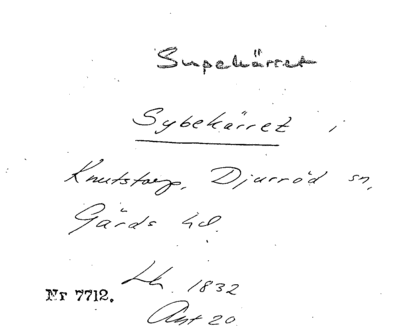 Supekärret
Sybekärret i
Knutstorp, Djurröd sn,
Gärds hd.
Lh. 1832
Nr 7712.
Akt 20